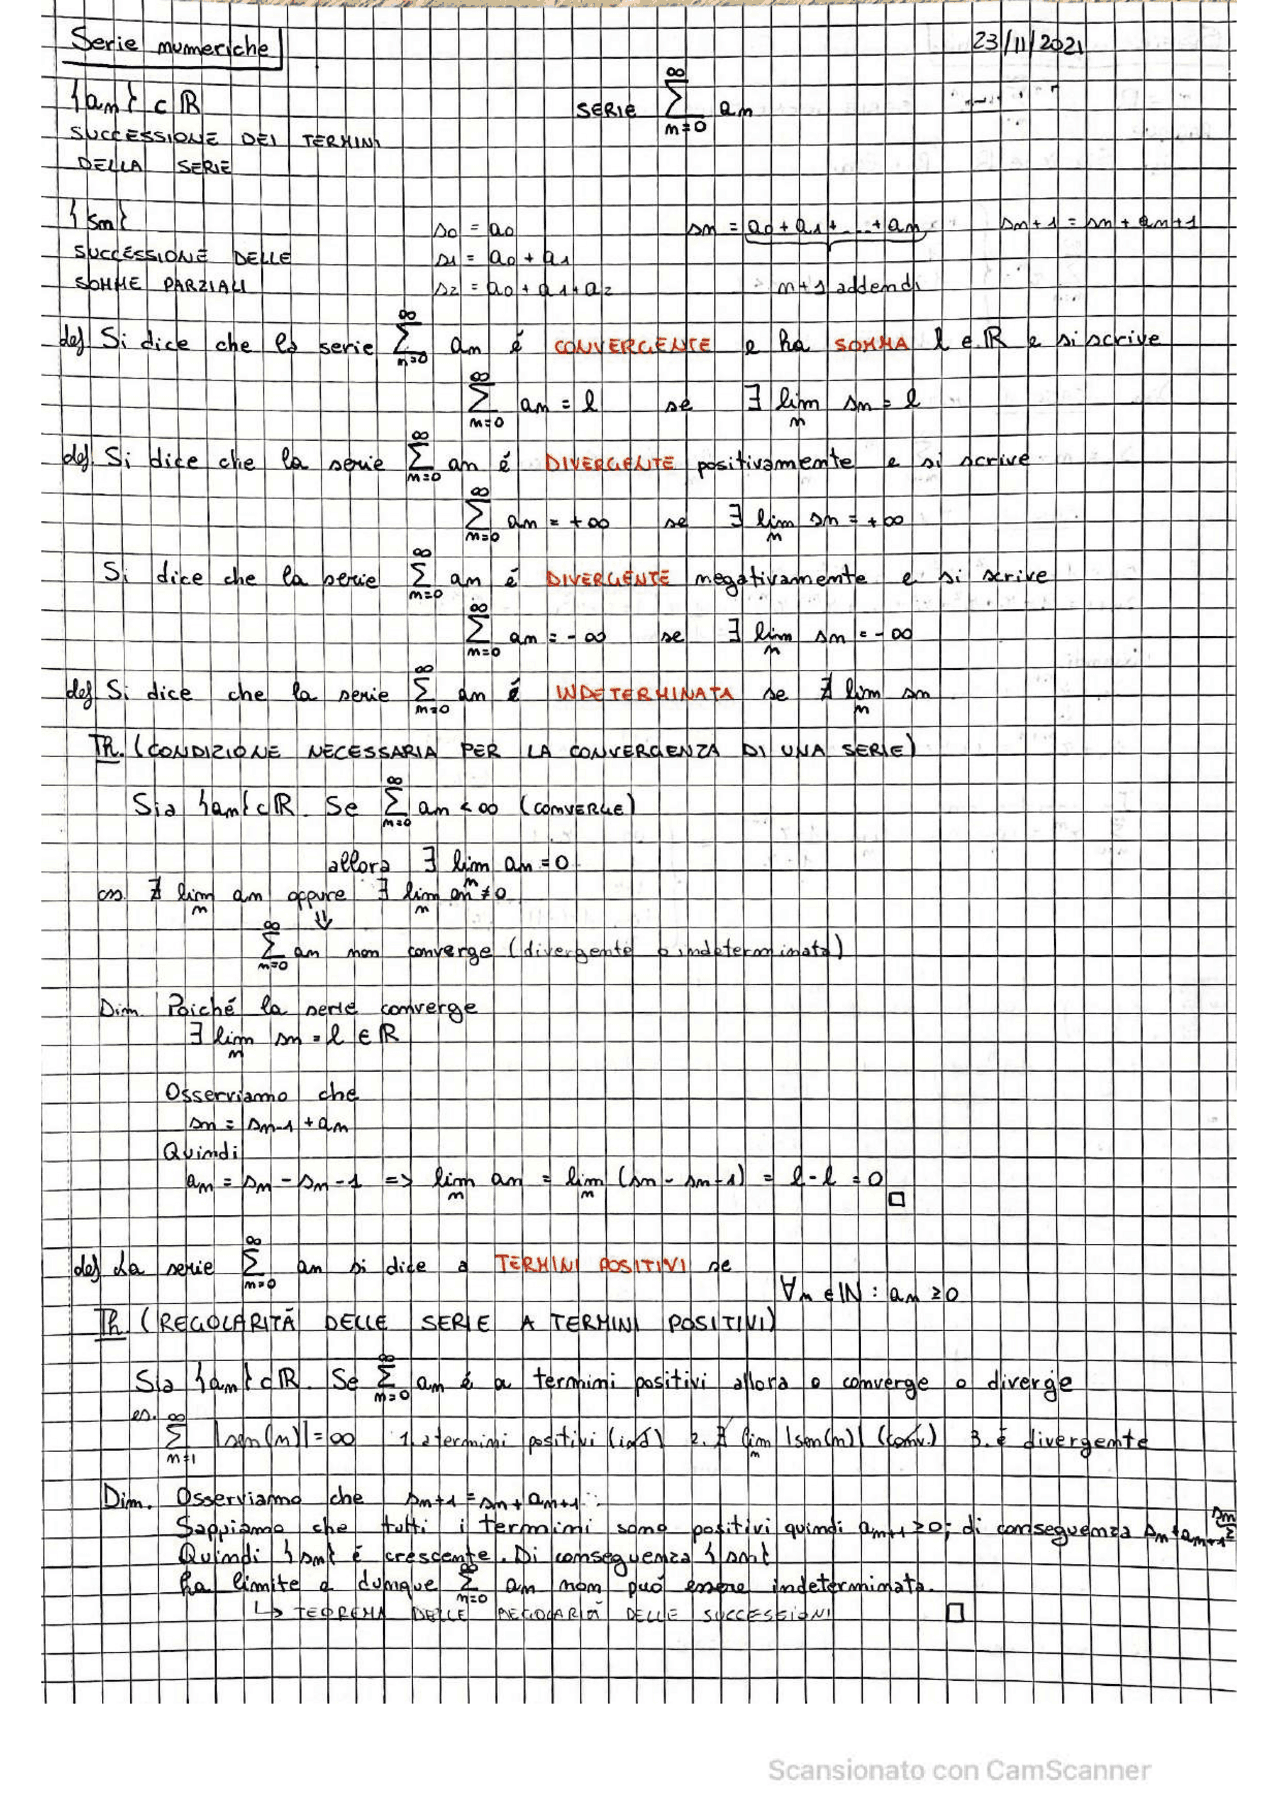 Serie numeriche 23/11/2021
{an} ⊂ ℝ SERIE ∑_{n=0}^{∞} an
SUCCESSIONE DEI TERMINI
DELLA SERIE
{sn} s0 = a0 sn = a0 + a1 + ... + an sn+1 = sn + an+1
SUCCESSIONE DELLE s1 = a0 + a1
SOMME PARZIALI s2 = a0 + a1 + a2 n+1 addendi
def Si dice che la serie ∑_{n=0}^{∞} an é CONVERGENTE e ha SOMMA l ∈ ℝ e si scrive
∑_{n=0}^{∞} an = l se ∃ lim_n sn = l
def Si dice che la serie ∑_{n=0}^{∞} an é DIVERGENTE positivamente e si scrive
∑_{n=0}^{∞} an = +∞ se ∃ lim_n sn = +∞
Si dice che la serie ∑_{n=0}^{∞} an é DIVERGENTE negativamente e si scrive
∑_{n=0}^{∞} an = -∞ se ∃ lim_n sn = -∞
def Si dice che la serie ∑_{n=0}^{∞} an é INDETERMINATA se ∄ lim_n sn
Th. (CONDIZIONE NECESSARIA PER LA CONVERGENZA DI UNA SERIE)
Sia {an} ⊂ ℝ. Se ∑_{n=0}^{∞} an < ∞ (CONVERGE)
allora ∃ lim_n an = 0
os. ∄ lim_n an oppure ∃ lim_n an ≠ 0
⇓
∑_{n=0}^{∞} an non converge (divergente o indeterminata)
Dim. Poiché la serie converge
∃ lim_n sn = l ∈ ℝ
Osserviamo che
sn = sn-1 + an
Quindi
an = sn - sn-1 => lim_n an = lim_n (sn - sn-1) = l - l = 0 □
def La serie ∑_{n=0}^{∞} an si dice a TERMINI POSITIVI se
∀n ∈ ℕ : an ≥ 0
Th. (REGOLARITÀ DELLE SERIE A TERMINI POSITIVI)
Sia {an} ⊂ ℝ. Se ∑_{n=0}^{∞} an é a termini positivi allora o converge o diverge
es.
∑_{n=1}^{∞} |sen(n)| = ∞ 1. a termini positivi (ind) 2. ∄ lim_n |sen(n)| (conv.) 3. é divergente
Dim. Osserviamo che sn+1 = sn + an+1
Sappiamo che tutti i termini sono positivi quindi an+1 ≥ 0; di conseguenza sn + an+1 ≥ sn
Quindi {sn} é crescente. Di conseguenza {sn}
ha limite e dunque ∑_{n=0}^{∞} an non puó essere indeterminata.
↳ TEOREMA DELLE REGOLARITÀ DELLE SUCCESSIONI □
Scansionato con CamScanner